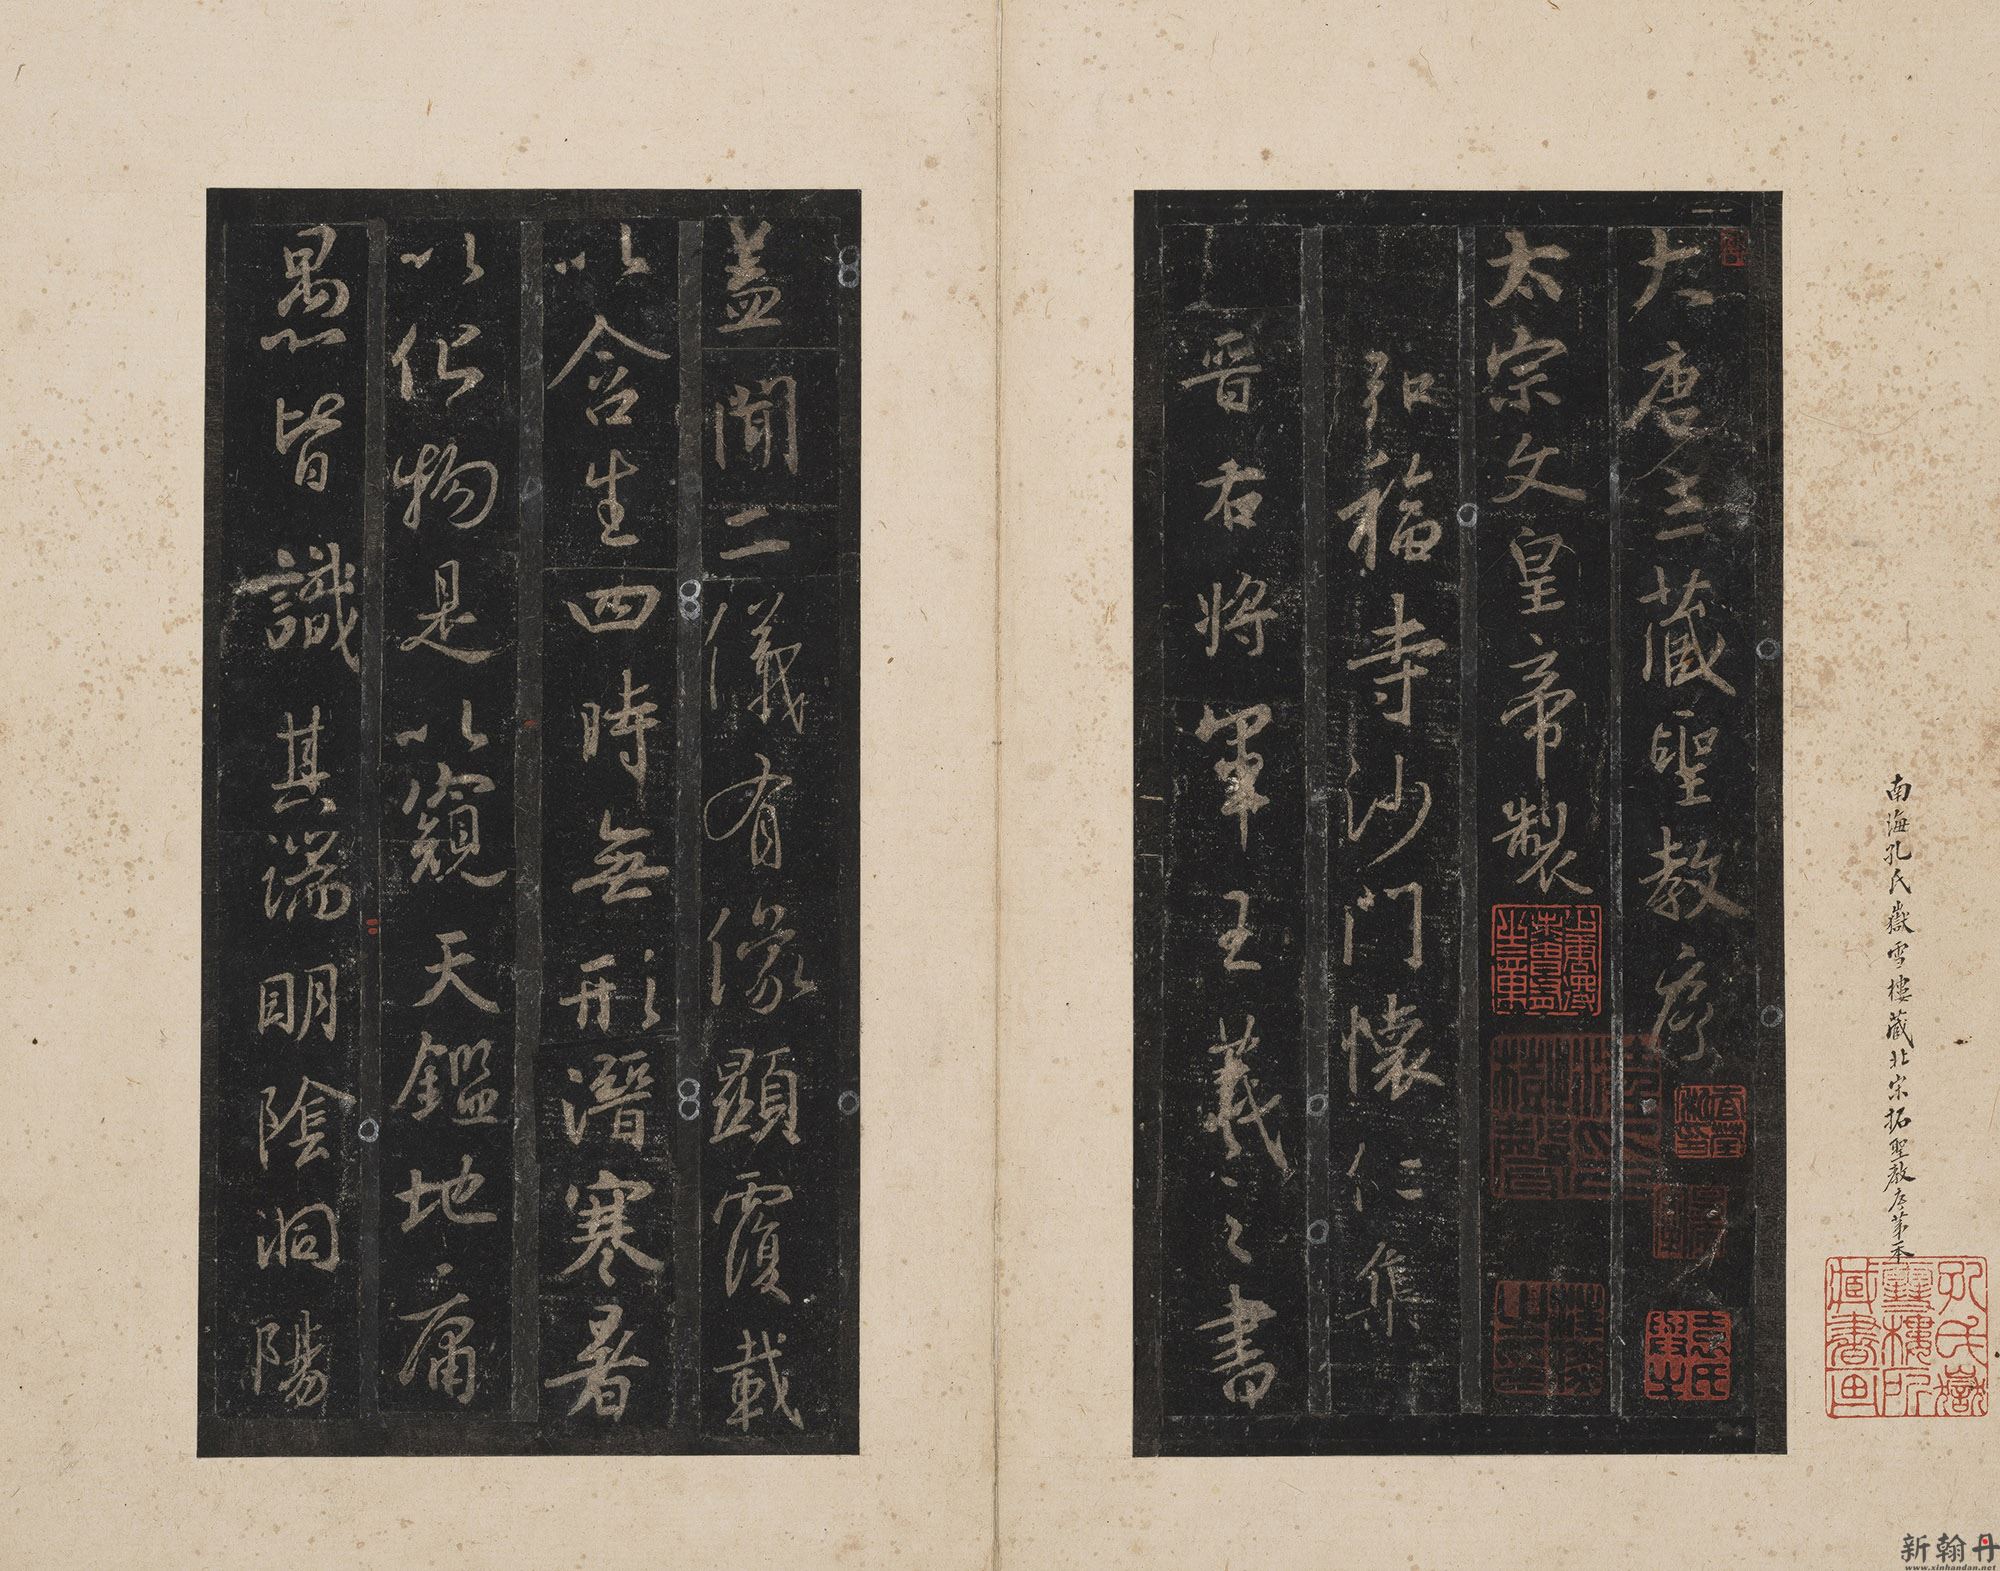 南海孔氏嶽雪樓藏北宋拓聖教序第一本
孔氏嶽雪樓所藏書画
大唐三藏聖教序
太宗文皇帝製
弘福寺沙門懷仁集
晉右將軍王羲之書
蓋聞二儀有像顯覆載
以含生四時無形潛寒暑
以化物是以窺天鑑地庸
愚皆識其端明陰洞陽
新翰丹
www.xinhandan.net